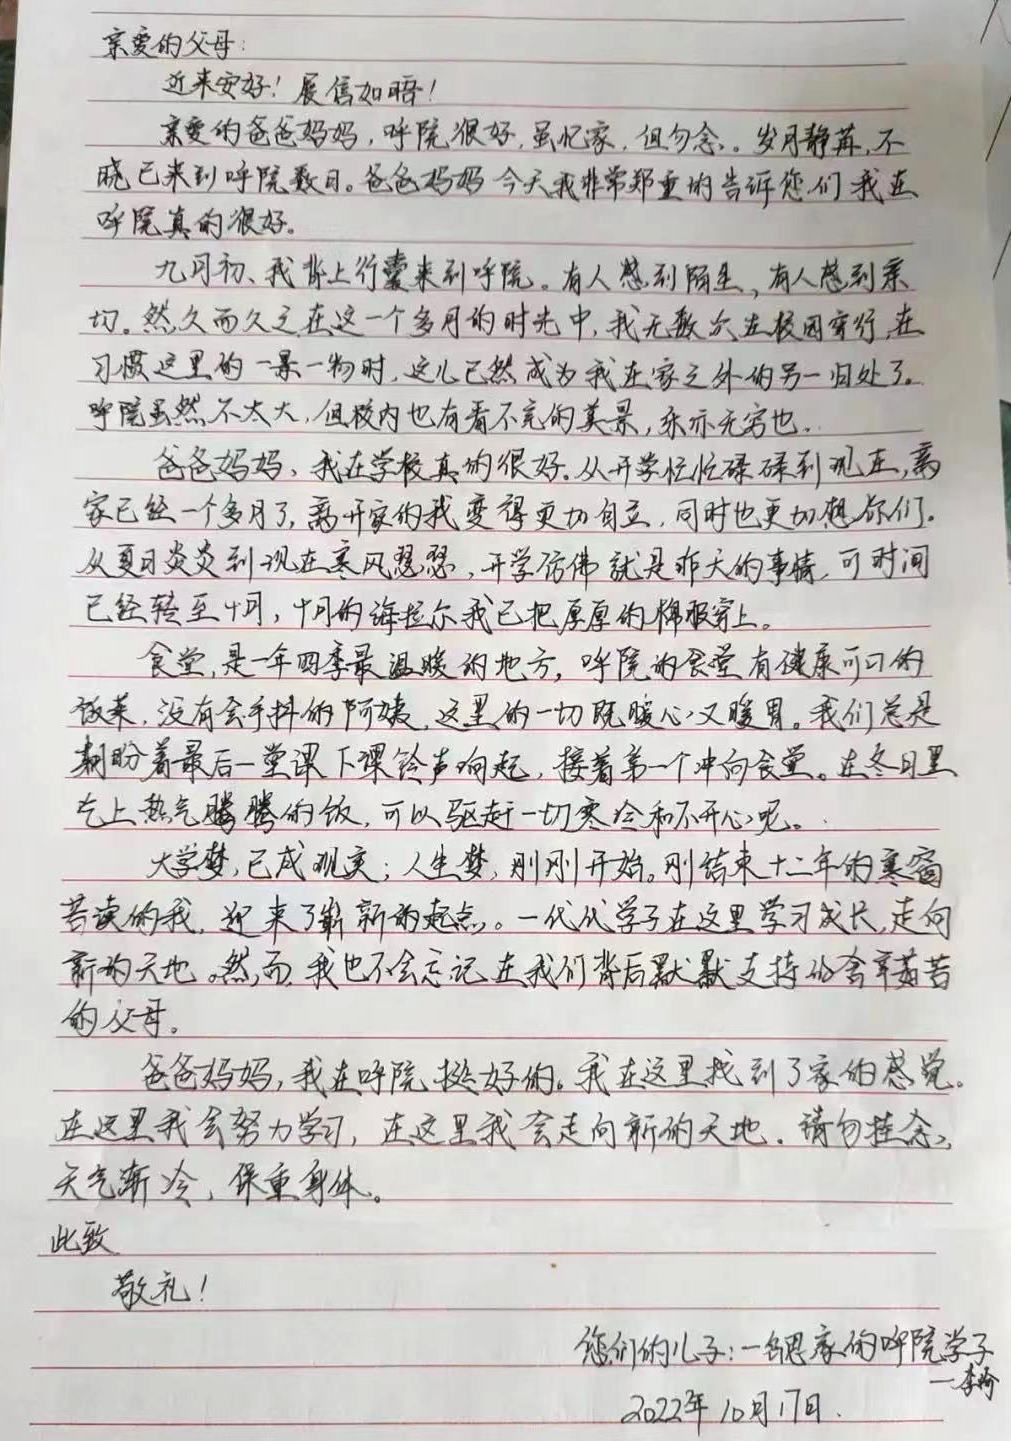 亲爱的父母:
近来安好!展信如晤!
亲爱的爸爸妈妈,呼院很好,虽忆家,但勿念。岁月静苒,不
晓已来到呼院数日。爸爸妈妈今天我非常郑重的告诉您们我在
呼院真的很好。
九月初、我背上行囊来到呼院。有人感到陌生,有人感到亲
切。然久而久之在这一个多月的时光中,我无数次在校园穿行,在
习惯这里的一景一物时,这儿已然成为我在家之外的另一归处了。
呼院虽然不太大,但校内也有看不完的美景,乐亦无穷也.
爸爸妈妈、我在学校真的很好。从开学忙忙碌碌到现在,离
家已经一个多月了,离开家的我变得更加自立,同时也更加想你们。
从夏日炎炎到现在寒风瑟瑟,开学仿佛就是昨天的事情,可时间
已经转至十月,十月的海拉尔我已把厚厚的棉服穿上。
食堂,是一年四季最温暖的地方,呼院的食堂有健康可口的
饭菜,没有会手抖的阿姨,这里的一切既暖心又暖胃。我们总是
期盼着最后一堂课下课铃声响起,接着第一个冲向食堂。在冬日里
吃上热气腾腾的饭,可以驱赶一切寒冷和不开心呢。
大学梦,已成现实;人生梦,刚刚开始。刚结束十二年的寒窗
苦读的我,迎来了崭新的起点。一代代学子在这里学习成长,走向
新的天地。然而,我也不会忘记在我们背后默默支持的含辛茹苦
的父母。
爸爸妈妈,我在呼院挺好的。我在这里找到了家的感觉。
在这里我会努力学习,在这里我会走向新的天地。请勿挂念,
天气渐冷,保重身体。
此致
敬礼!
您们的儿子:一名思家的呼院学子
—李
2022年10月17日.